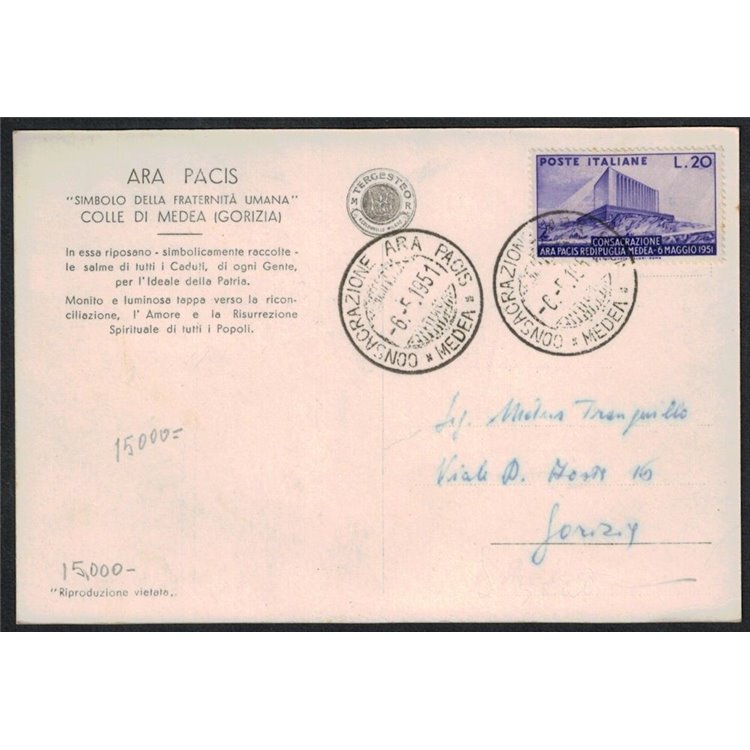 ARA PACIS
"SIMBOLO DELLA FRATERNITÀ UMANA"
COLLE DI MEDEA (GORIZIA)
In essa riposano - simbolicamente raccolte -
le salme di tutti i Caduti, di ogni Gente,
per l'Ideale della Patria.
Monito e luminosa tappa verso la ricon-
ciliazione, l'Amore e la Risurrezione
Spirituale di tutti i Popoli.
15000=
15,000-
"Riproduzione vietata„
TERGESTEO
CONSACRAZIONE ARA PACIS * MEDEA *
-6.-5.1951
POSTE ITALIANE L.20
CONSACRAZIONE
ARA PACIS REDIPUGLIA MEDEA-6 MAGGIO 1951
CONSACRAZIONE MEDEA *
-6.-5.195
Sig. Tranquillo
Viale D. 16
Gorizia